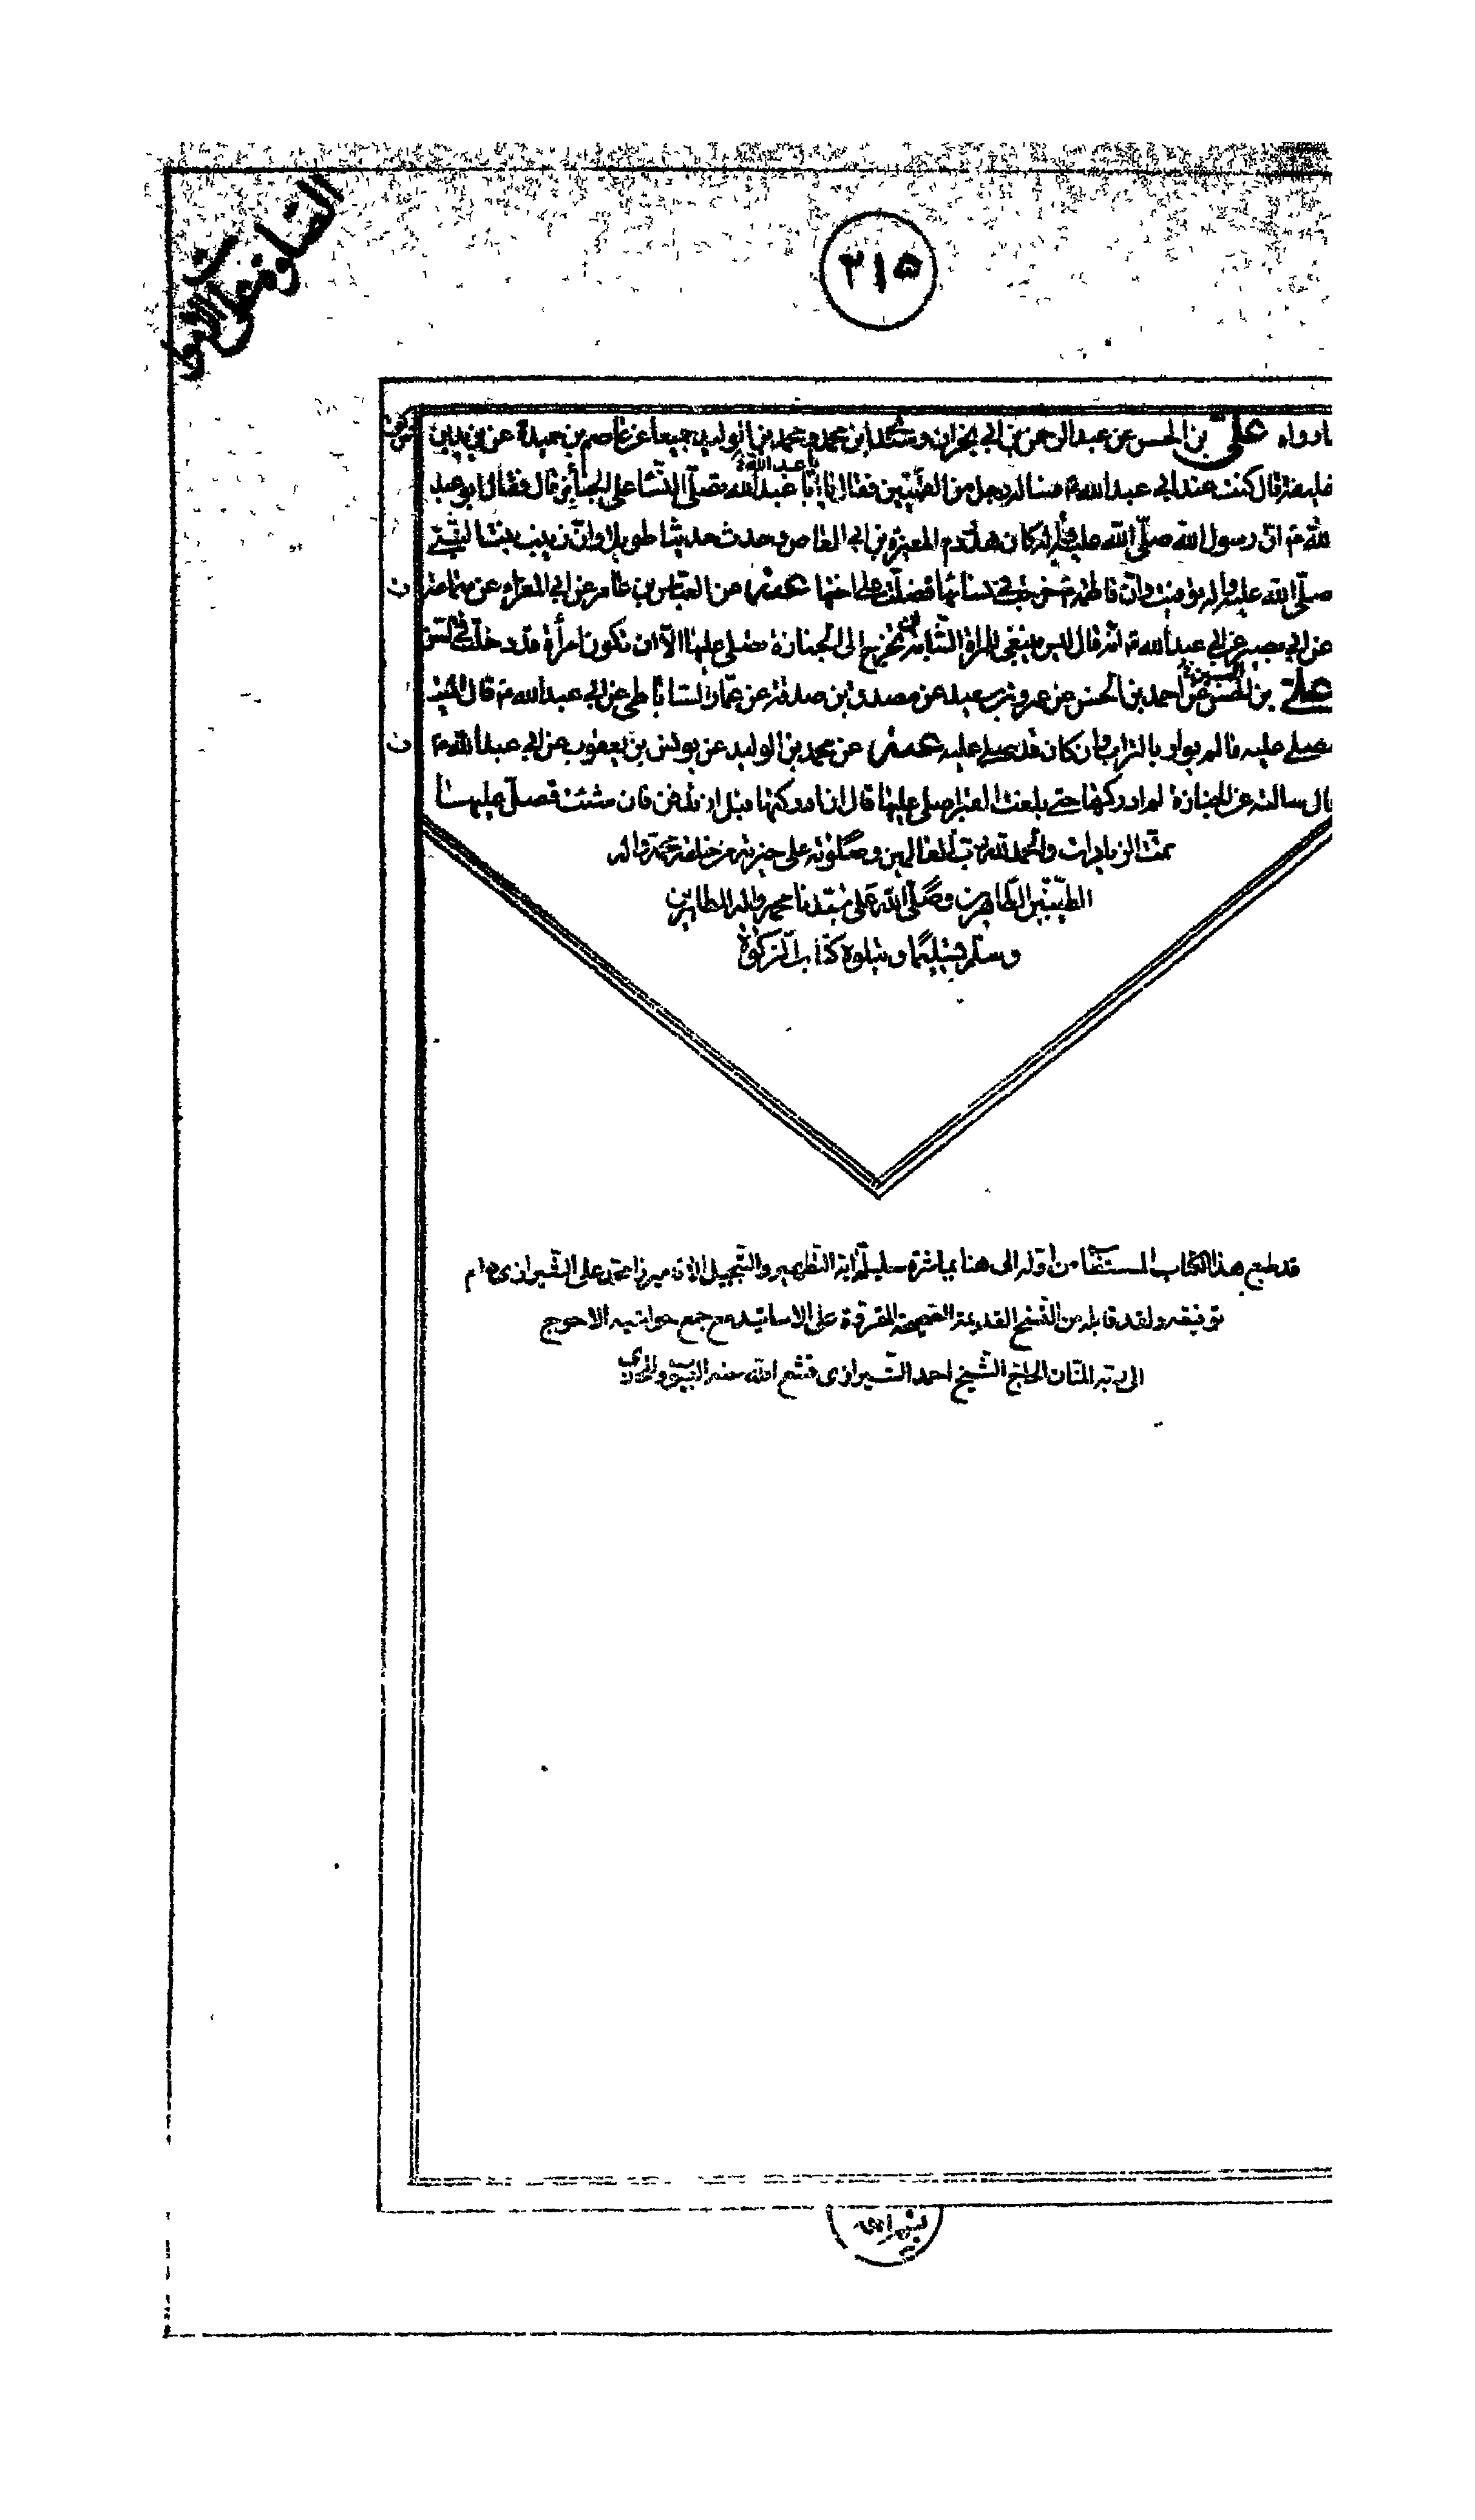 الصلوة على الاموات
٣١٥
مارواه علي بن الحسن عن عبد الرحمن بن ابي نجران وسندي ابن محمد ومحمد بن الوليد جميعا عن عاصم بن حميد عن يزيد بن
خليفة قال كنت عند ابي عبد الله ع فسأله رجل من القميين فقال يا ابا عبد الله تصلي النساء على الجنائز قال فقال ابو عبد
الله ع ان رسول الله صلى الله عليه واله كان هدر دم المغيرة بن ابي العاص وحدث حديثا طويلا وان زينب بنت النبي
صلى الله عليه واله توفيت وان فاطمة ع خرجت في نسائها فصلت على اختها عنه عن العباس بن عامر عن ابي المغرا عن سماعة
عن ابي بصير عن ابي عبد الله ع انه قال ليس ينبغي للمرأة الشابة ان تخرج الى الجنازة تصلي عليها الا ان تكون امرأة قد دخلت في السن
علي بن الحسن عن احمد بن الحسن عن عمرو بن سعيد عن مصدق بن صدقة عن عمار الساباطي عن ابي عبد الله ع قال الميت
يصلى عليه مالم يوار بالتراب وان كان قد صلي عليه عنه عن محمد بن الوليد عن يونس بن يعقوب عن ابي عبد الله ع
قال سالته عن الجنازة لم ادركها حتى بلغت القبر اصلي عليها قال ان ادركتها قبل ان تدفن فان شئت فصل عليها
تمت الزيادات والحمد لله رب العالمين وصلوته على خيرته من خلقه محمد واله
الطيبين الطاهرين وصلى الله على سيدنا محمد واله الطاهرين
وسلم تسليما ويتلوه كتاب الزكوة
قد طبع هذا الكتاب المستطاب من اوله الى هنا بمباشرة سليل اية التطهير والتبجيل الاقا ميرزا محمد علي الشيرازي دام
توفيقه ولقد قابله من النسخ القديمة الصحيحة المقروة على الاساتيد مع جمع حواشيه الاحوج
الى ربه المنان الحاج الشيخ احمد الشيرازي